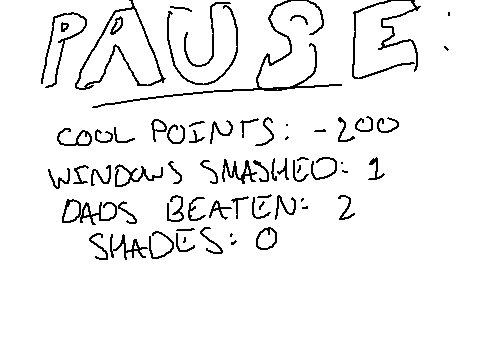 PAUSE:
COOL POINTS: -200
WINDOWS SMASHED: 1
DADS BEATEN: 2
SHADES: 0